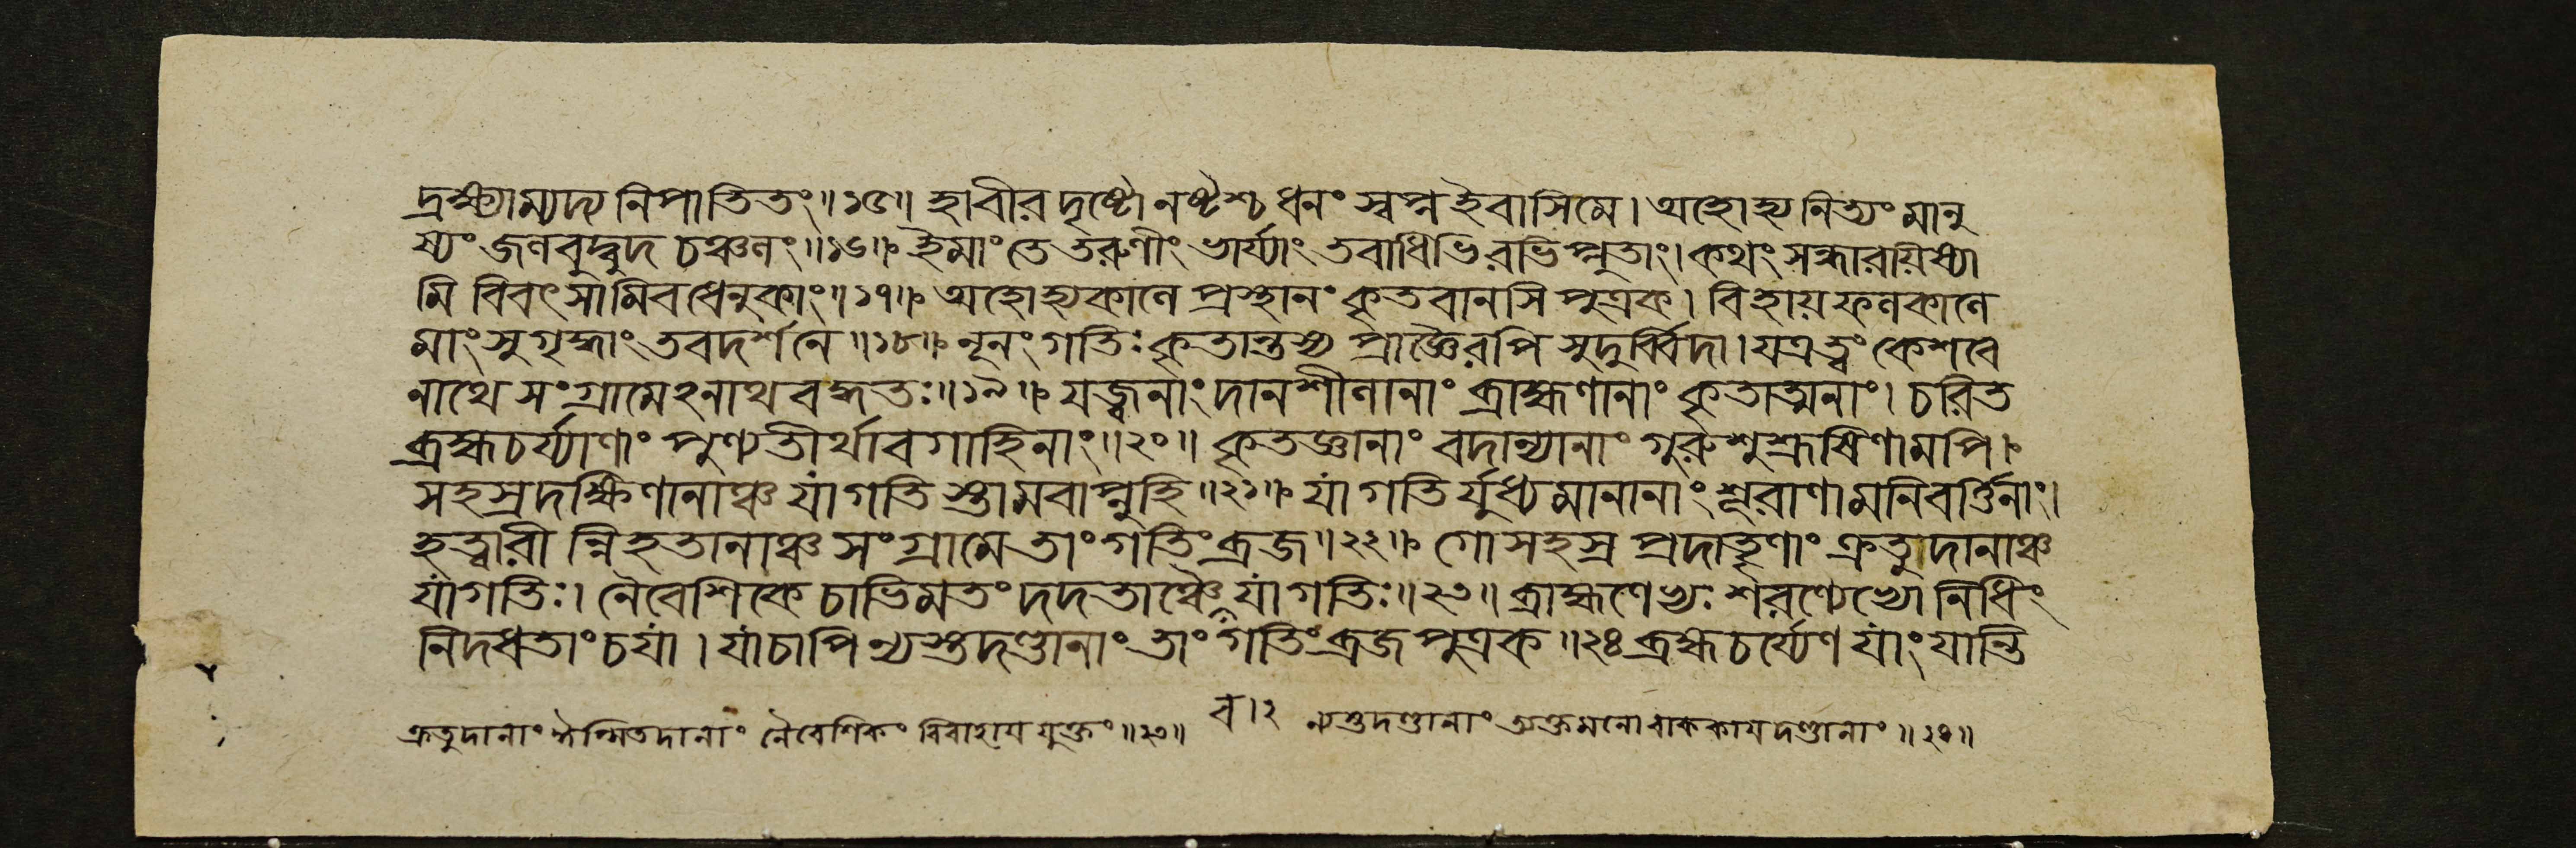 দ্রক্ষ্যাম্যদ্য নিপাতিতং॥১৫॥ হাবীর দৃষ্টো নষ্টশ্চ ধনং স্বপ্ন ইবাসিমে। অহোহ্য নিত্যং মানু
ষ্যং জলবুদ্বুদ চঞ্চলং॥১৬॥ ইমাং তে তরুণীং ভার্য্যাং তবাধিভিরভিপ্লুতাং। কথং সন্ধারয়িষ্যা
মি বিবৎসামিব ধেনুকাং॥১৭॥ অহোহ্যকালে প্রস্থানং কৃতবানসি পুত্রক। বিহায় ফলকালে
মাং সুগৃদ্ধাং তবদর্শনে॥১৮॥ নূনং গতিঃ কৃতান্তস্য প্রাজ্ঞৈরপি সুদুর্ব্বিদা। যত্র ত্বং কেশবে
নাথে সংগ্রামেঽনাথবদ্ধতঃ॥১৯॥ যজ্বনাং দানশীলানাং ব্রাহ্মণানাং কৃতাত্মনাং। চরিত
ব্রহ্মচর্য্যাণাং পুণ্যতীর্থাবগাহিনাং॥২০॥ কৃতজ্ঞানাং বদান্যানাং গুরুশুশ্রূষিণামপি।
সহস্রদক্ষিণানাঞ্চ যা গতি স্তামবাপ্নুহি॥২১॥ যা গতি র্যুধ্যমানানাং শূরাণামনিবর্ত্তিনাং।
হত্বারী ন্নিহতানাঞ্চ সংগ্রামে তাং গতিং ব্রজ॥২২॥ গোসহস্র প্রদাতৄণাং ক্রতুদানাঞ্চ
যা গতিঃ। নৈবেশিকে চাভিমতং দদতাঞ্চৈ যা গতিঃ॥২৩॥ ব্রাহ্মণেভ্যঃ শরণ্যেভ্যো নিধিং
নিদধতাং চ যা। যা চাপি ন্যস্তদণ্ডানাং তাং গতিং ব্রজ পুত্রক॥২৪ ব্রহ্মচর্য্যেণ যাং যান্তি
ক্রতুদানাং নৈবেশিকং বিবাহায যুক্তং॥২৩॥ ব।২ ন্যস্তদণ্ডানাং ত্যক্তমনোবাককাযদণ্ডানাং॥২৪॥